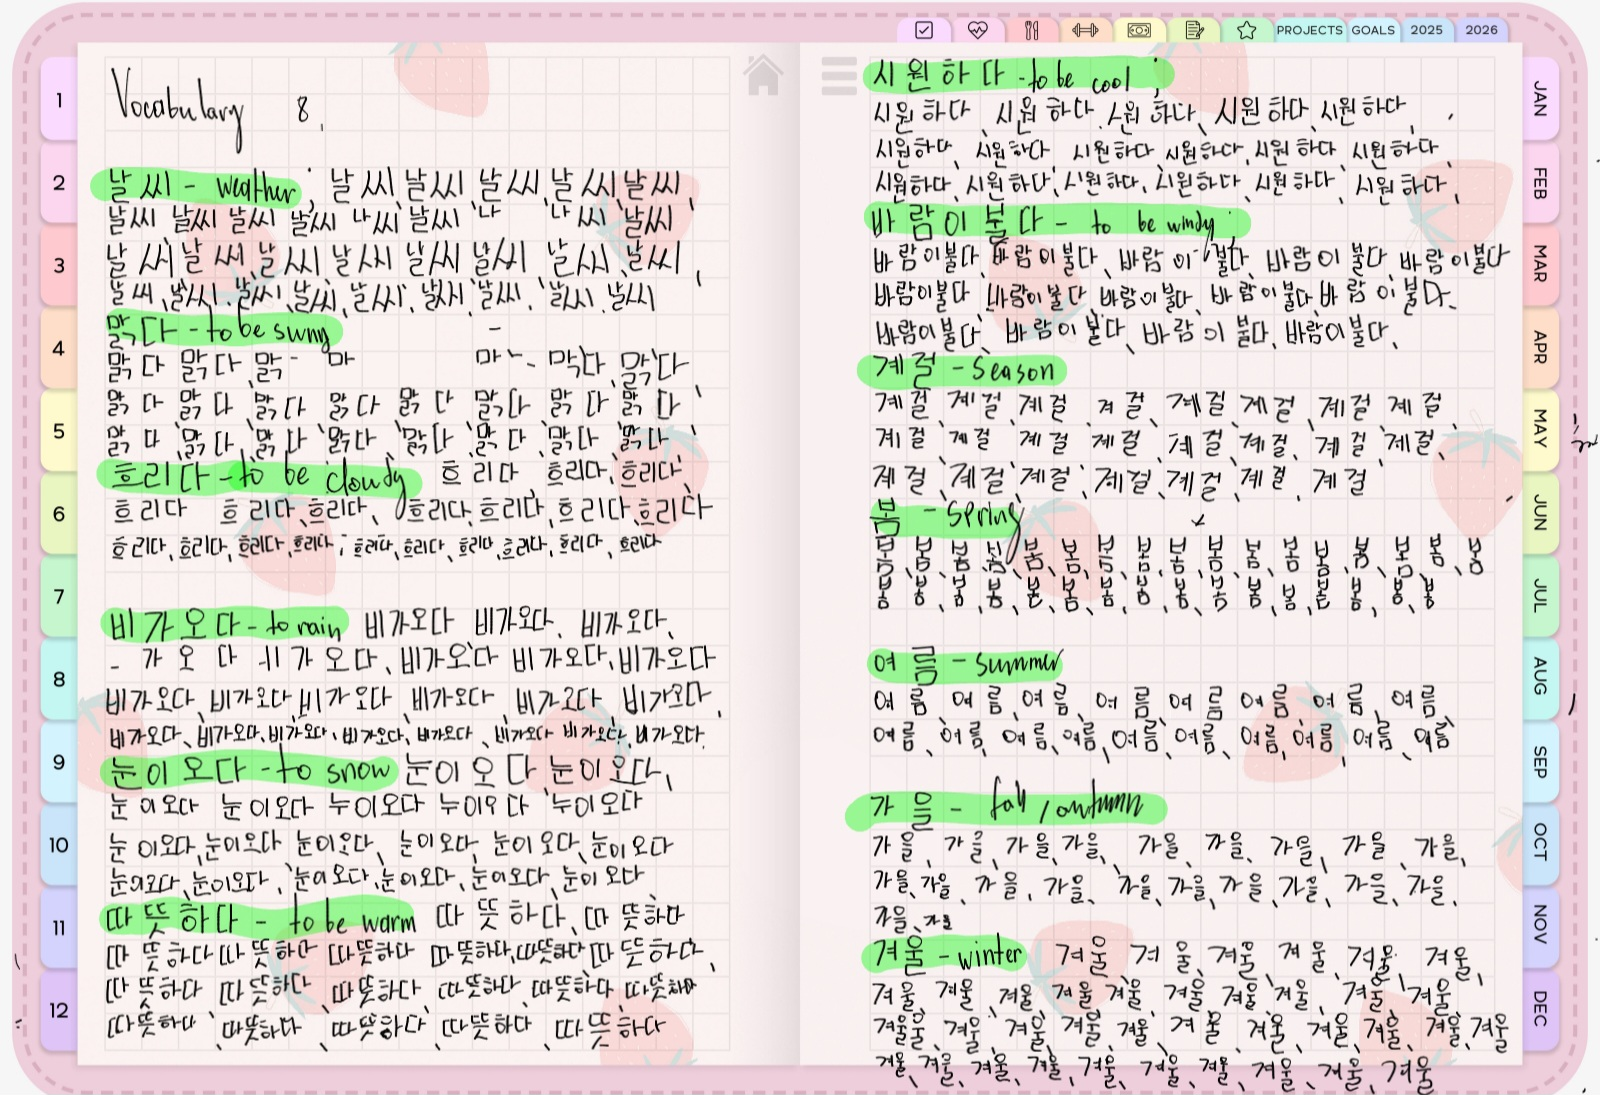 PROJECTS GOALS 2025 2026
1
2
3
4
5
6
7
8
9
10
11
12
Vocabulary 8.
날씨 - weather; 날씨, 날씨, 날씨, 날씨, 날씨,
날씨 날씨 날씨 날씨 나씨 날씨 나 나씨 날씨
날씨, 날씨, 날씨, 날씨, 날씨, 날씨, 날씨, 날씨,
날씨, 날씨, 날씨, 날씨, 날씨, 날씨, 날씨, 날씨, 날씨
맑다 - to be sunny
맑다 맑다, 맑 마 막다, 맑다
맑다 맑다 맑다 맑다 맑다 맑다 맑다 맑다
맑다, 맑다, 맑다, 맑다, 맑다, 맑다, 맑다, 맑다
흐리다 - to be cloudy 흐리다, 흐리다, 흐리다,
흐리다 흐리다, 흐리다, 흐리다, 흐리다, 흐리다, 흐리다
흐리다, 흐리다, 흐리다, 흐리다, 흐리다, 흐리다, 흐리다, 흐리다, 흐리다, 흐리다
비가오다 - to rain 비가오다 비가오다, 비가오다,
가오다 가오다, 비가오다 비가오다, 비가오다
비가오다, 비가오다, 비가오다, 비가오다, 비가오다, 비가오다,
비가오다, 비가오다, 비가오다, 비가오다, 비가오다, 비가오다 비가오다, 비가오다.
눈이오다 - to snow 눈이오다, 눈이오다,
눈이오다 눈이오다 누이오다 누이오다 누이오다
눈이오다, 눈이오다 눈이오다, 눈이오다, 눈이오다, 눈이오다
눈이오다, 눈이오다, 눈이오다, 눈이오다, 눈이오다, 눈이오다
따뜻하다 - to be warm 따뜻하다, 따뜻하다
따뜻하다 따뜻하다 따뜻하다 따뜻하다, 따뜻하다 따뜻하다,
따뜻하다 따뜻하다, 따뜻하다, 따뜻하다, 따뜻하다, 따뜻하다
따뜻하다, 따뜻하다, 따뜻하다, 따뜻하다, 따뜻하다
시원하다 - to be cool;
시원하다, 시원하다, 시원하다, 시원하다, 시원하다,
시원하다, 시원하다, 시원하다, 시원하다, 시원하다, 시원하다,
시원하다, 시원하다, 시원하다, 시원하다, 시원하다, 시원하다,
바람이불다 - to be windy
바람이불다, 바람이불다, 바람이불다, 바람이불다, 바람이불다
바람이불다, 바람이불다, 바람이불다, 바람이불다, 바람이불다.
바람이불다, 바람이불다, 바람이불다, 바람이불다,
계걸 - Season
계걸, 계걸, 계걸, 겨걸, 계걸, 계걸, 계걸, 계걸,
계걸, 계걸, 계걸, 계걸, 계걸, 계걸, 계걸, 계걸,
계걸, 계걸, 계걸, 계걸, 계걸, 계걸, 계걸
봄 - Spring
봄, 봄, 봄, 봄, 봄, 봄, 봄, 봄, 봄, 봄, 봄, 봄, 봄, 봄, 봄, 봄, 봄
봄, 봄, 봄, 봄, 봄, 봄, 봄, 봄, 봄, 봄, 봄, 봄, 봄, 봄, 봄, 봄
여름 - summer
여름, 여름, 여름, 여름, 여름, 여름, 여름, 여름,
여름, 여름, 여름, 여름, 여름, 여름, 여름, 여름, 여름, 여름
가을 - fall / autumn
가을, 가을, 가을, 가을, 가을, 가을, 가을, 가을, 가을,
가을, 가을, 가을, 가을, 가을, 가을, 가을, 가을, 가을, 가을,
가을, 가을
겨울 - winter 겨울, 겨울, 겨울, 겨울, 겨울, 겨울,
겨울, 겨울, 겨울, 겨울, 겨울, 겨울, 겨울, 겨울, 겨울, 겨울
겨울, 겨울, 겨울, 겨울, 겨울, 겨울, 겨울, 겨울, 겨울, 겨울, 겨울
겨울, 겨울, 겨울, 겨울, 겨울, 겨울, 겨울, 겨울, 겨울, 겨울
JAN
FEB
MAR
APR
MAY
JUN
JUL
AUG
SEP
OCT
NOV
DEC